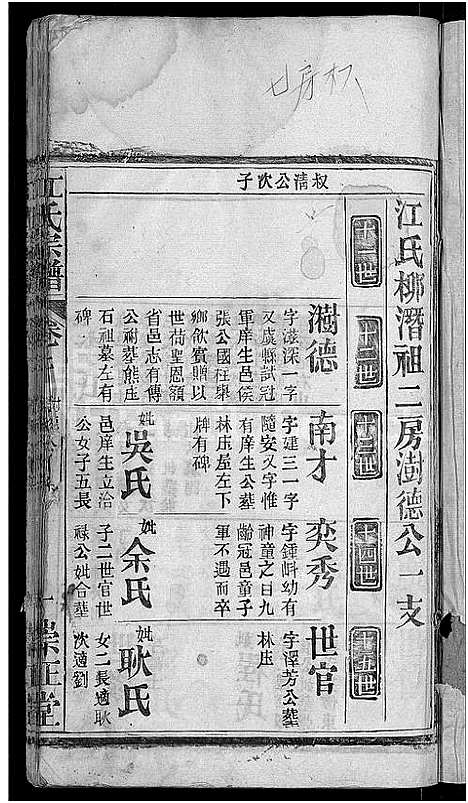 七房权
叔清公次子
江氏柳潛祖二房澍德公一支
十一世
十二世
十三世
十四世
十五世
澍德
字滋深一字
又虞縣試冠
軍庠生邑侯
張公國柱舉
鄉飲賓贈以
世荷聖恩額
省邑志有傳
公祔墓熊庄
石祖墓左有
碑
南才
字建三一字
隨安又字惟
有庠生公墓
林庄屋左下
牌有碑
妣吳氏
邑庠生立治
公女子五長
奕秀
字鍾嵋幼有
神童之目九
齡冠邑童子
軍不遇而卒
妣余氏
子二世官世
祿公妣合墓
世官
字澤芳公墓
林庄
妣耿氏
女二長適耿
次適劉
江氏宗譜
卷
崇正堂